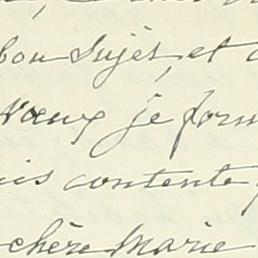 bon sujet, et
vœux je form
is contente
chère Marie